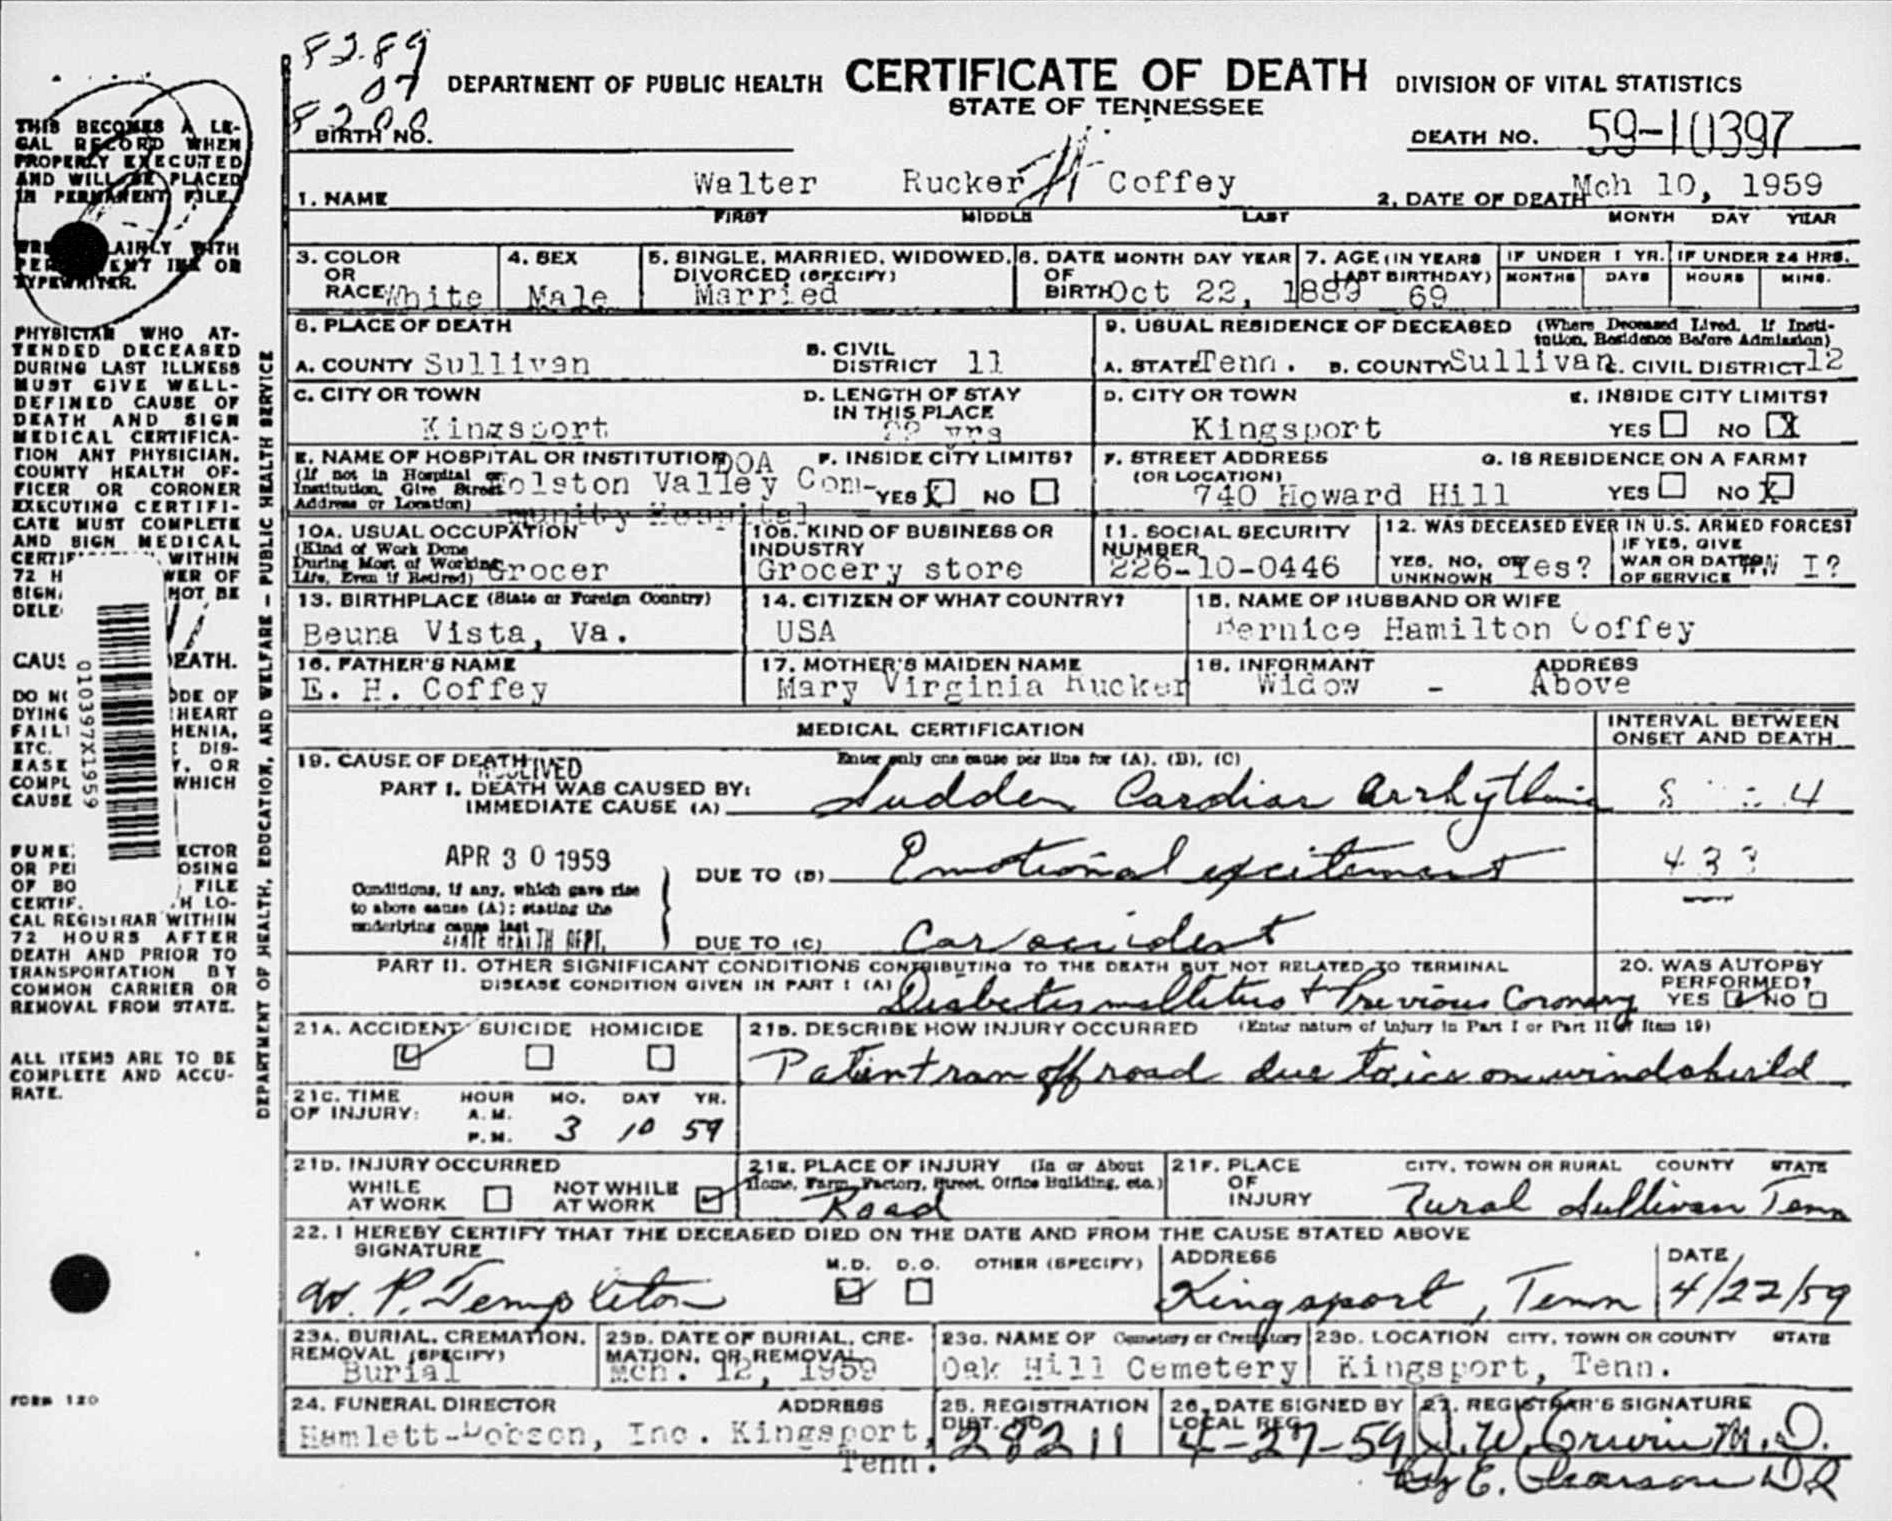 8289
07
8200
DEPARTMENT OF PUBLIC HEALTH CERTIFICATE OF DEATH DIVISION OF VITAL STATISTICS
STATE OF TENNESSEE
BIRTH NO.
DEATH NO. 59-10397
1. NAME Walter Rucker Coffey
FIRST MIDDLE LAST
2. DATE OF DEATH Mch 10, 1959
MONTH DAY YEAR
3. COLOR OR RACE White
4. SEX Male
5. SINGLE, MARRIED, WIDOWED, DIVORCED (SPECIFY) Married
6. DATE OF BIRTH MONTH DAY YEAR Oct 22, 1889
7. AGE (IN YEARS LAST BIRTHDAY) 69
IF UNDER 1 YR. MONTHS DAYS
IF UNDER 24 HRS. HOURS MINS.
8. PLACE OF DEATH
A. COUNTY Sullivan
B. CIVIL DISTRICT 11
9. USUAL RESIDENCE OF DECEASED (Where Deceased Lived. If Institution, Residence Before Admission)
A. STATE Tenn. B. COUNTY Sullivan C. CIVIL DISTRICT 12
C. CITY OR TOWN Kingsport
D. LENGTH OF STAY IN THIS PLACE 22 yrs
D. CITY OR TOWN Kingsport
E. INSIDE CITY LIMITS? YES NO X
E. NAME OF HOSPITAL OR INSTITUTION DOA
(If not in Hospital or Institution, Give Street Address or Location) Holston Valley Community Hospital
F. INSIDE CITY LIMITS? YES X NO
F. STREET ADDRESS (OR LOCATION) 740 Howard Hill
G. IS RESIDENCE ON A FARM? YES NO X
10A. USUAL OCCUPATION (Kind of Work Done During Most of Working Life, Even if Retired) Grocer
10B. KIND OF BUSINESS OR INDUSTRY Grocery store
11. SOCIAL SECURITY NUMBER 226-10-0446
12. WAS DECEASED EVER IN U.S. ARMED FORCES?
YES, NO, OR UNKNOWN Yes?
IF YES, GIVE WAR OR DATES OF SERVICE WW I?
13. BIRTHPLACE (State or Foreign Country) Beuna Vista, Va.
14. CITIZEN OF WHAT COUNTRY? USA
15. NAME OF HUSBAND OR WIFE Bernice Hamilton Coffey
16. FATHER'S NAME E. H. Coffey
17. MOTHER'S MAIDEN NAME Mary Virginia Rucker
18. INFORMANT ADDRESS Widow - Above
MEDICAL CERTIFICATION
INTERVAL BETWEEN ONSET AND DEATH
19. CAUSE OF DEATH Enter only one cause per line for (A), (B), (C)
PART I. DEATH WAS CAUSED BY:
IMMEDIATE CAUSE (A) Sudden Cardiac Arrhythmia
APR 30 1959
STATE HEALTH DEPT.
Conditions, if any, which gave rise to above cause (A); stating the underlying cause last
DUE TO (B) Emotional excitement
433
DUE TO (C) Car accident
PART II. OTHER SIGNIFICANT CONDITIONS CONTRIBUTING TO THE DEATH BUT NOT RELATED TO TERMINAL DISEASE CONDITION GIVEN IN PART I (A) Diabetes mellitus + Previous Coronary
20. WAS AUTOPSY PERFORMED? YES NO
21A. ACCIDENT SUICIDE HOMICIDE
21B. DESCRIBE HOW INJURY OCCURRED (Enter nature of injury in Part I or Part II of Item 19)
Patient ran off road due to ice on windshield
21C. TIME OF INJURY: HOUR MO. DAY YR.
A.M.
P.M. 3 10 59
21D. INJURY OCCURRED
WHILE AT WORK NOT WHILE AT WORK
21E. PLACE OF INJURY (In or About Home, Farm, Factory, Street, Office Building, etc.) Road
21F. PLACE OF INJURY CITY, TOWN OR RURAL COUNTY STATE
Rural Sullivan Tenn
22. I HEREBY CERTIFY THAT THE DECEASED DIED ON THE DATE AND FROM THE CAUSE STATED ABOVE
SIGNATURE W. P. Templeton
M.D. D.O. OTHER (SPECIFY)
ADDRESS Kingsport, Tenn
DATE 4/22/59
23A. BURIAL, CREMATION, REMOVAL (SPECIFY) Burial
23B. DATE OF BURIAL, CREMATION, OR REMOVAL Mch. 12, 1959
23C. NAME OF Cemetery or Crematory Oak Hill Cemetery
23D. LOCATION CITY, TOWN OR COUNTY STATE Kingsport, Tenn.
24. FUNERAL DIRECTOR ADDRESS
Hamlett-Dobson, Inc. Kingsport, Tenn.
25. REGISTRATION DIST. NO. 28211
26. DATE SIGNED BY LOCAL REG. 4-27-59
27. REGISTRAR'S SIGNATURE J. W. Erwin M.D.
By E. Pearson D R
THIS BECOMES A LE-
GAL RECORD WHEN
PROPERLY EXECUTED
AND WILL BE PLACED
IN PERMANENT FILE.
PHYSICIAN WHO AT-
TENDED DECEASED
DURING LAST ILLNESS
MUST GIVE WELL-
DEFINED CAUSE OF
DEATH AND SIGN
MEDICAL CERTIFICA-
TION ANY PHYSICIAN,
COUNTY HEALTH OF-
FICER OR CORONER
EXECUTING CERTIFI-
CATE MUST COMPLETE
AND SIGN MEDICAL
WITHIN
010397X1959
CAL REGISTRAR WITHIN
72 HOURS AFTER
DEATH AND PRIOR TO
TRANSPORTATION BY
COMMON CARRIER OR
REMOVAL FROM STATE.
ALL ITEMS ARE TO BE
COMPLETE AND ACCU-
RATE.
FORM 120
DEPARTMENT OF HEALTH, EDUCATION, AND WELFARE - PUBLIC HEALTH SERVICE